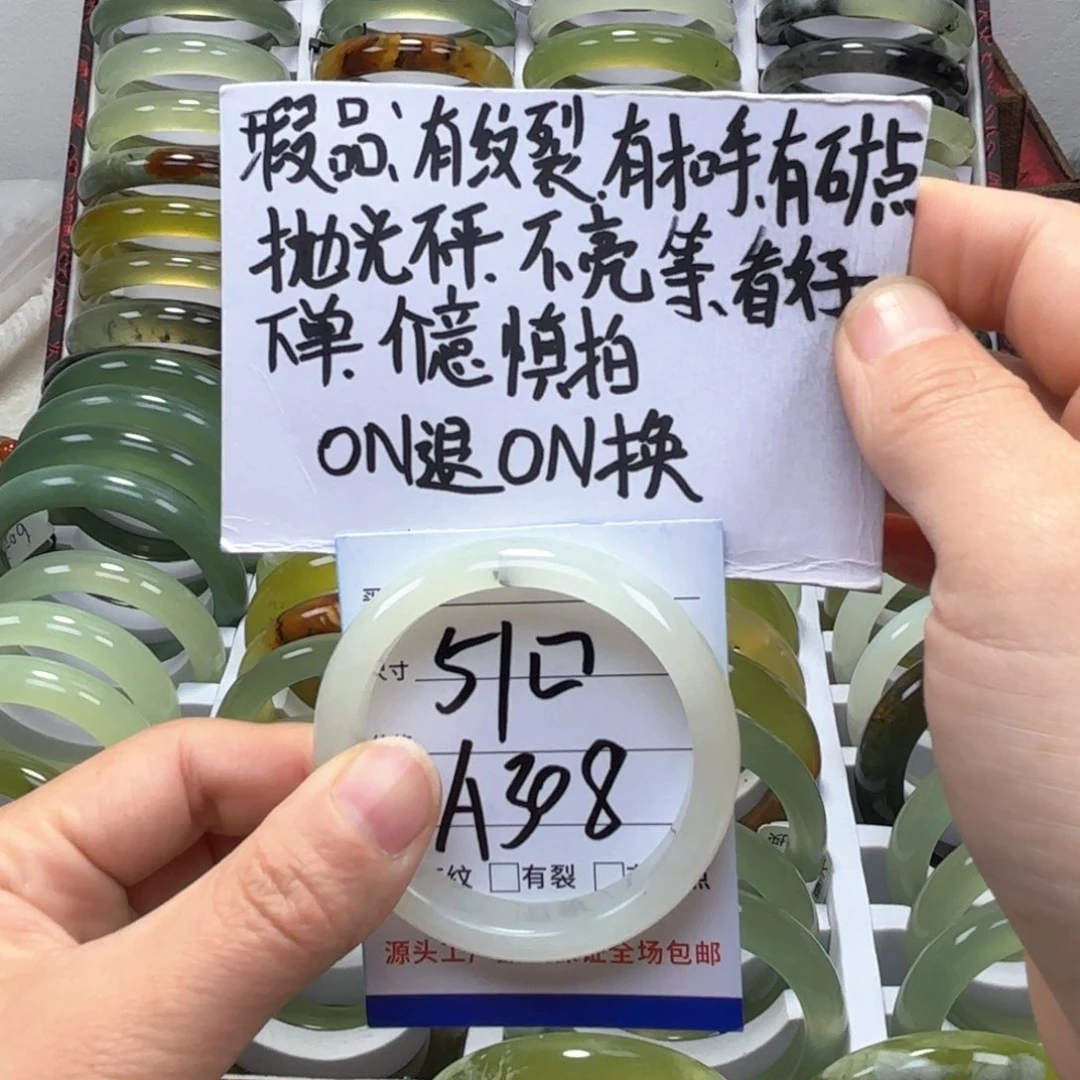 瑕品、有纹裂.有扣手.有矿点
抛光不平.不亮等、看好
下单.介意慎拍
ON退ON换
尺寸
51口
A308
纹 □有裂 □
点
源头工厂
证全场包邮